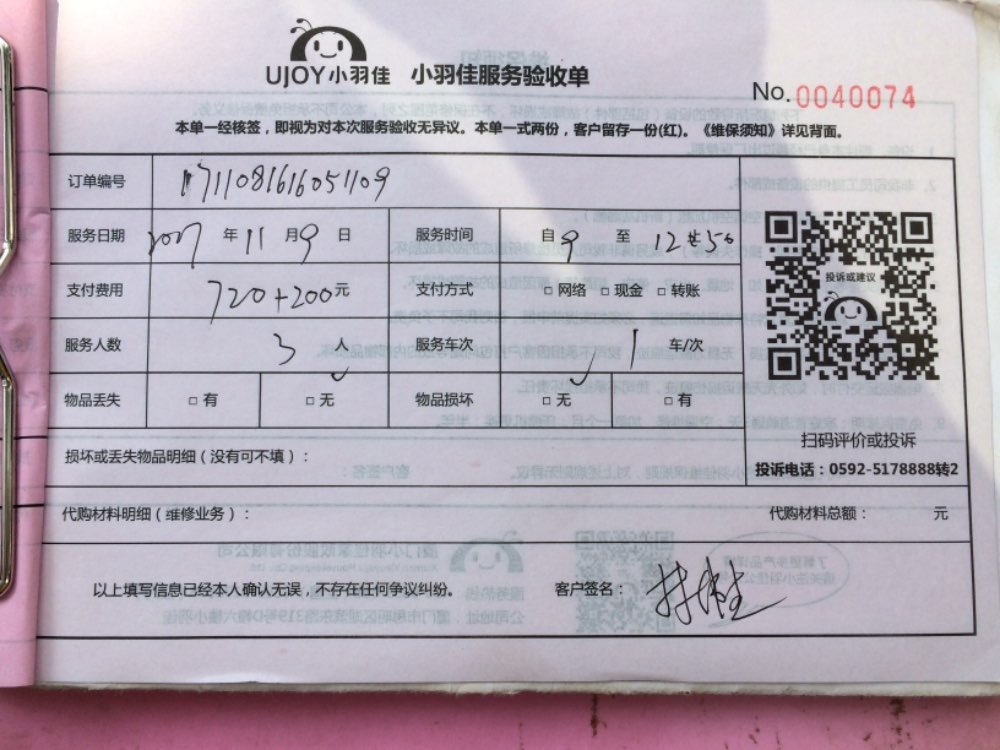 UJOY小羽佳 小羽佳服务验收单
No.0040074
本单一经核签，即视为对本次服务验收无异议。本单一式两份，客户留存一份(红)。《维保须知》详见背面。
订单编号 1711081616051109
服务日期 2017 年 11 月 9 日 服务时间 自 9 至 12
支付费用 720+200元 支付方式 □ 网络 □ 现金 □ 转账
投诉或建议
服务人数 3 人 服务车次 1 车/次
物品丢失 □ 有 □ 无 物品损坏 □ 无 □ 有
扫码评价或投诉
损坏或丢失物品明细（没有可不填）：
投诉电话：0592-5178888转2
代购材料明细（维修业务）： 代购材料总额： 元
以上填写信息已经本人确认无误，不存在任何争议纠纷。 客户签名：